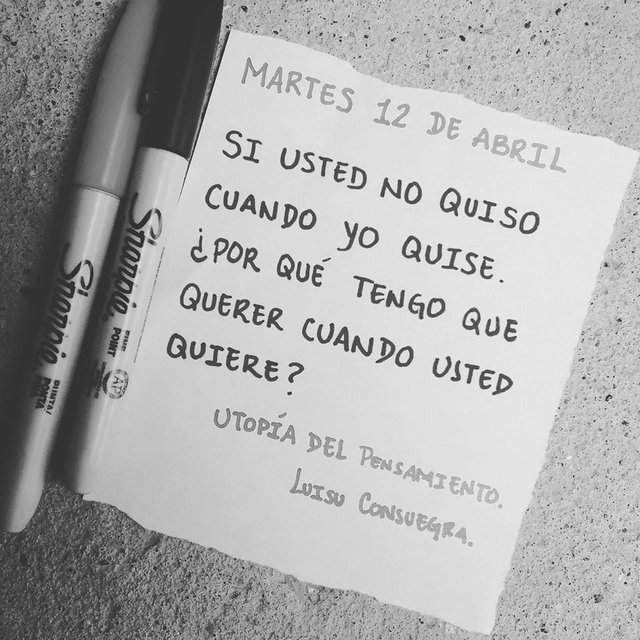 MARTES 12 DE ABRIL
SI USTED NO QUISO
CUANDO YO QUISE.
¿POR QUÉ TENGO QUE
QUERER CUANDO USTED
QUIERE?
UTOPÍA DEL PENSAMIENTO.
LUISU CONSUEGRA.
Sharpie
Sharpie
POINT